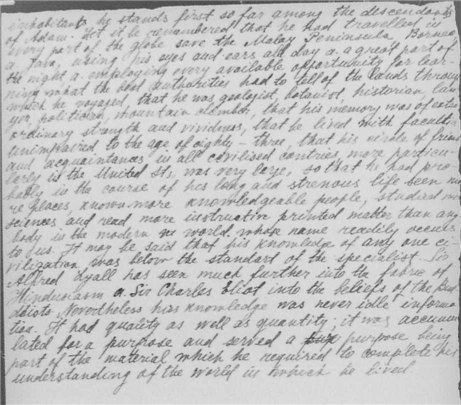 inhabitants he stands first so far among the descendants
of Adam. Yet it be remembered that he had travelled in
every part of the globe save the Malay Peninsula, Borneo
a Java, using his eyes and ears all day a. a great part of
the night a. employing every available opportunity for lear-
ning what the best authorities had to tell of the lands through
which he voyaged, that he was geologist, botanist, historian, law
yer, politician, mountain climber, that his memory was of extra
ordinary strength and vividness, that he lived with faculties
unimpaired to the age of eighty-three, that his circle of friends
and acquaintances in all civilised contries more particu-
larly in the United Sts, was very large, so that he had pro
bably in the course of his long and strenous life seen mo
re places, known more knowledgeable people, studied more
sciences and read more instructive printed matter than any
body in the modern world whose name readily occurs
to us. It may be said that his knowledge of any one ci-
vilization was below the standart of the specialist. Sir
Alfred Lyall has seen much further into the fabric of
Hinduism a. Sir Charles Eliot into the beliefs of the Bud
dists Nevertheless his knowledge was never idle informa
tion. It had quality as well as quantity; it was accumu
lated for a purpose and served a purpose being
part of the material which he required to complete his
understanding of the world in which he lived